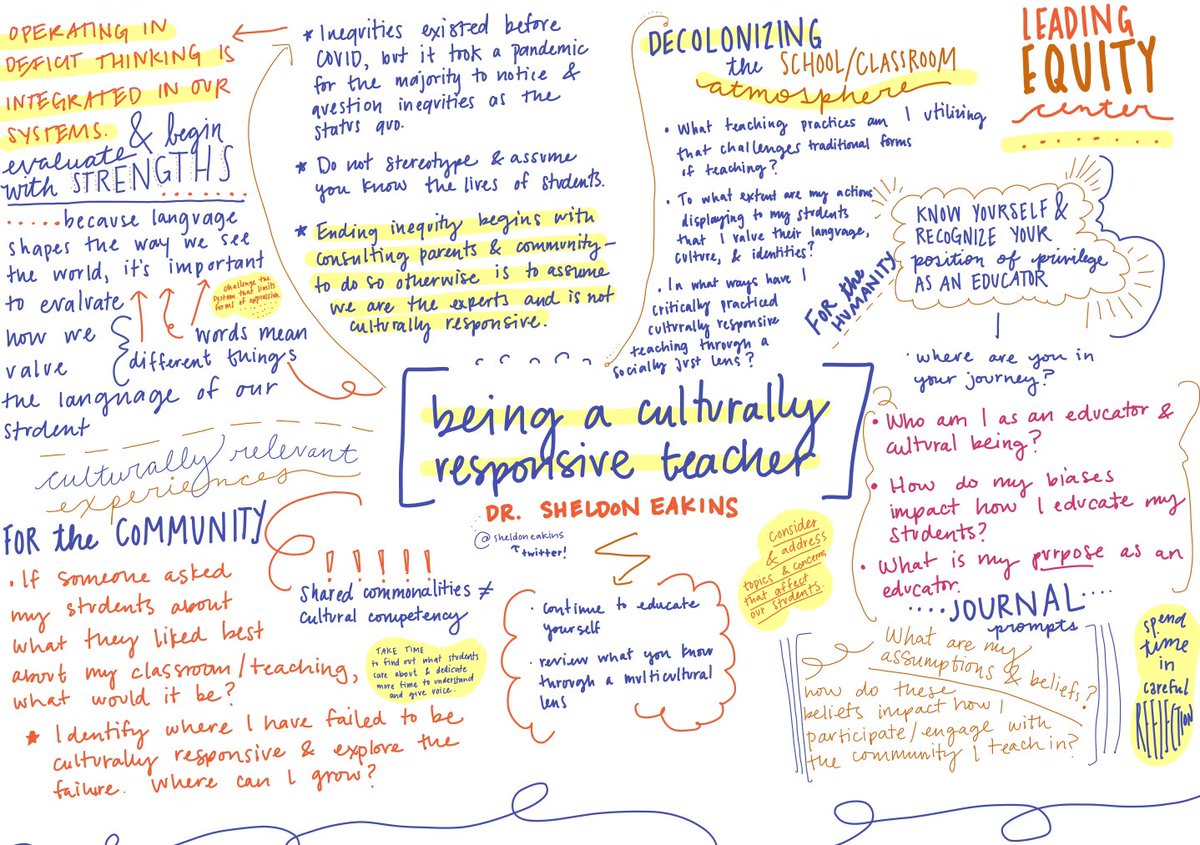 OPERATING IN
DEFICIT THINKING IS
INTEGRATED IN OUR
SYSTEMS.
& begin
evaluate
with STRENGTHS
.....because language
shapes the way we see
the world, it's important
to evaluate
how we
value
words mean
different things
the language of our
student
challenge the
system that limits
forms of expression.
* Inequities existed before
COVID, but it took a pandemic
for the majority to notice &
question inequities as the
status quo.
* Do not stereotype & assume
you know the lives of students.
* Ending inequity begins with
consulting parents & community—
to do so otherwise is to assume
we are the experts and is not
culturally responsive.
DECOLONIZING
the SCHOOL/CLASSROOM
atmosphere
• What teaching practices am I utilizing
that challenges traditional forms
of teaching?
• To what extent are my actions
displaying to my students
that I value their language,
culture, & identities?
• In what ways have I
critically practiced
culturally responsive
teaching through a
socially just lens?
LEADING
EQUITY
center
FOR the
HUMANITY
KNOW YOURSELF &
RECOGNIZE YOUR
position of privilege
AS AN EDUCATOR
• where are you in
your journey?
• Who am I as an educator &
cultural being?
• How do my biases
impact how I educate my
students?
• What is my purpose as an
educator.
....JOURNAL....
prompts
What are my
assumptions & beliefs?
how do these
beliefs impact how I
participate/engage with
the community I teach in?
spend
time
in
careful
REFLECTION
being a culturally
responsive teacher
DR. SHELDON EAKINS
@sheldoneakins
twitter!
Consider
& address
topics & concerns
that affect
our students.
• continue to educate
yourself
• review what you know
through a multicultural
lens
culturally relevant
experiences
FOR the COMMUNITY
• If someone asked
my students about
what they liked best
about my classroom/teaching,
what would it be?
* Identify where I have failed to be
culturally responsive & explore the
failure. Where can I grow?
! ! ! ! !
Shared commonalities ≠
cultural competency
TAKE TIME
to find out what students
care about & dedicate
more time to understand
and give voice.